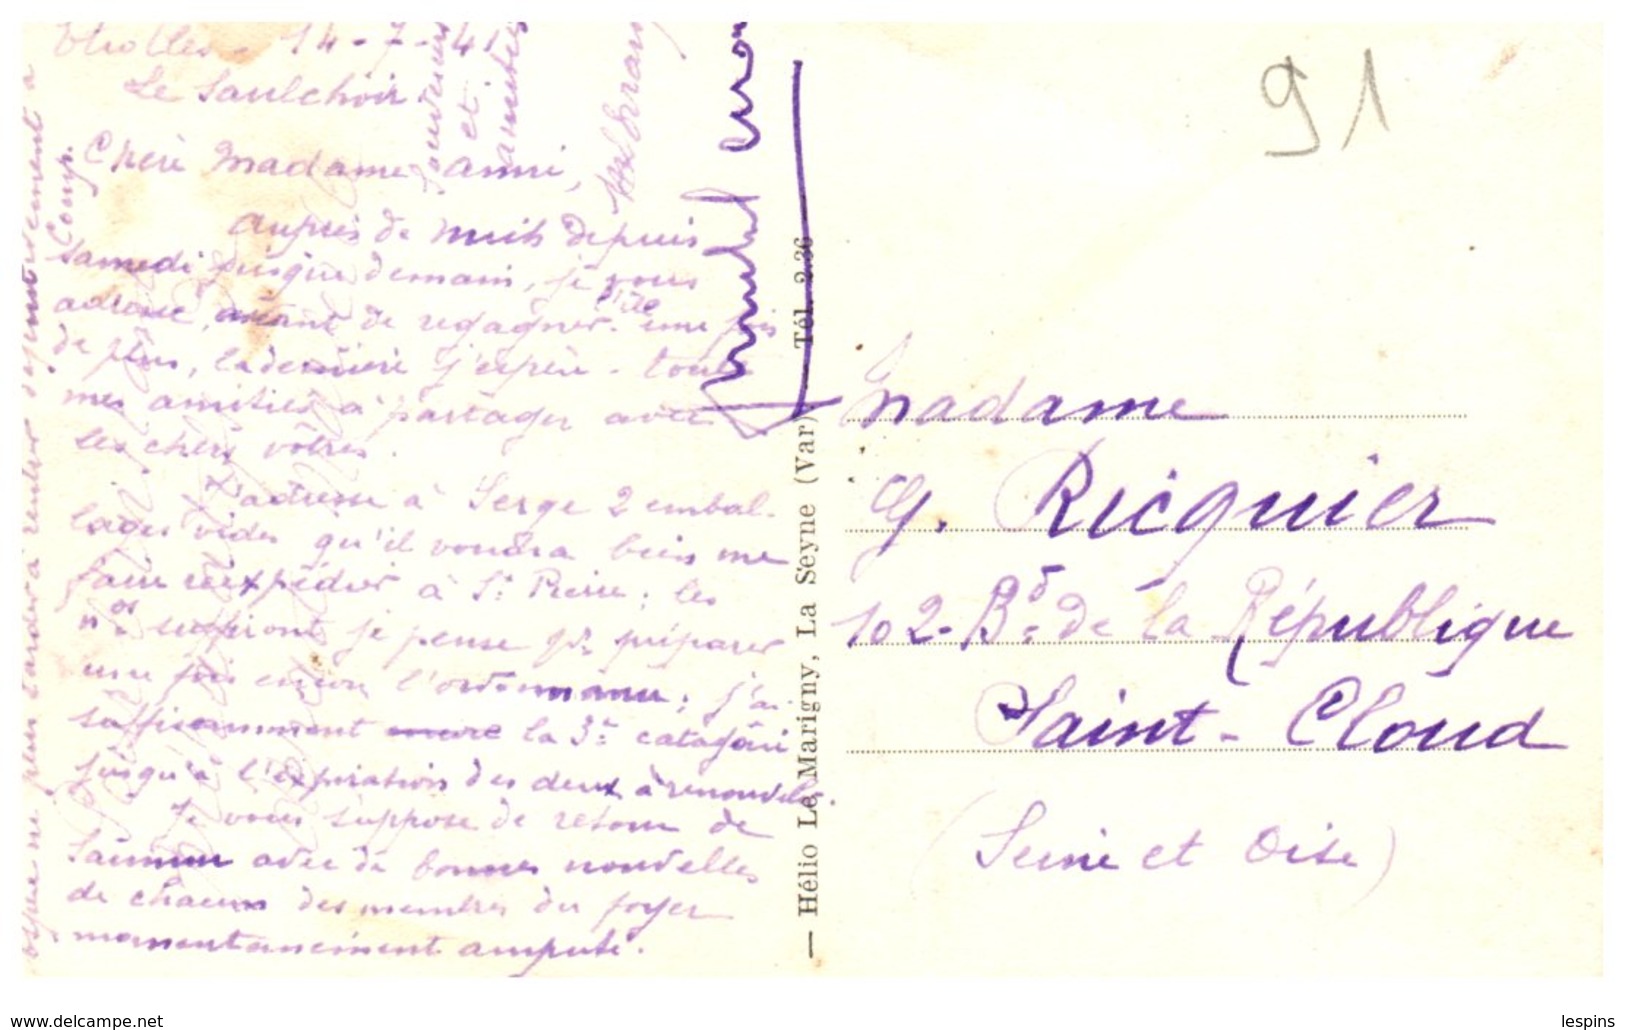 Etiolles - 14-7-41
Le Saulchoir
Chère Madame amie,
auprès de Mich depuis
Samedi jusque demain, je vous
adresse, avant de regagner l'île une fois
de plus, la dernière j'espère - toutes
mes amitiés à partager avec
les chers vôtres.
J'adresse à Serge 2 embal-
lages vides qu'il voudra bien me
faire réexpédier à St Pierre ; les
nos suffiront je pense pr préparer
une fois encore l'ordonnance ; j'ai
suffisamment encore la 3e catégorie
jusqu'à l'expiration des deux à renouveler.
Je vous suppose de retour de
Saumur avec de bonnes nouvelles
de chacun des membres du foyer
momentanément amputé.
que ne plus tarder à rentrer définitivement à
Comp.
souvenirs
et
amitiés
— Hélio Le Marigny, La Seyne (Var) Tél. 2.36
91
Madame
G. Ricquier
102 - Bd de la République
Saint-Cloud
(Seine et Oise)
www.delcampe.net
lespins